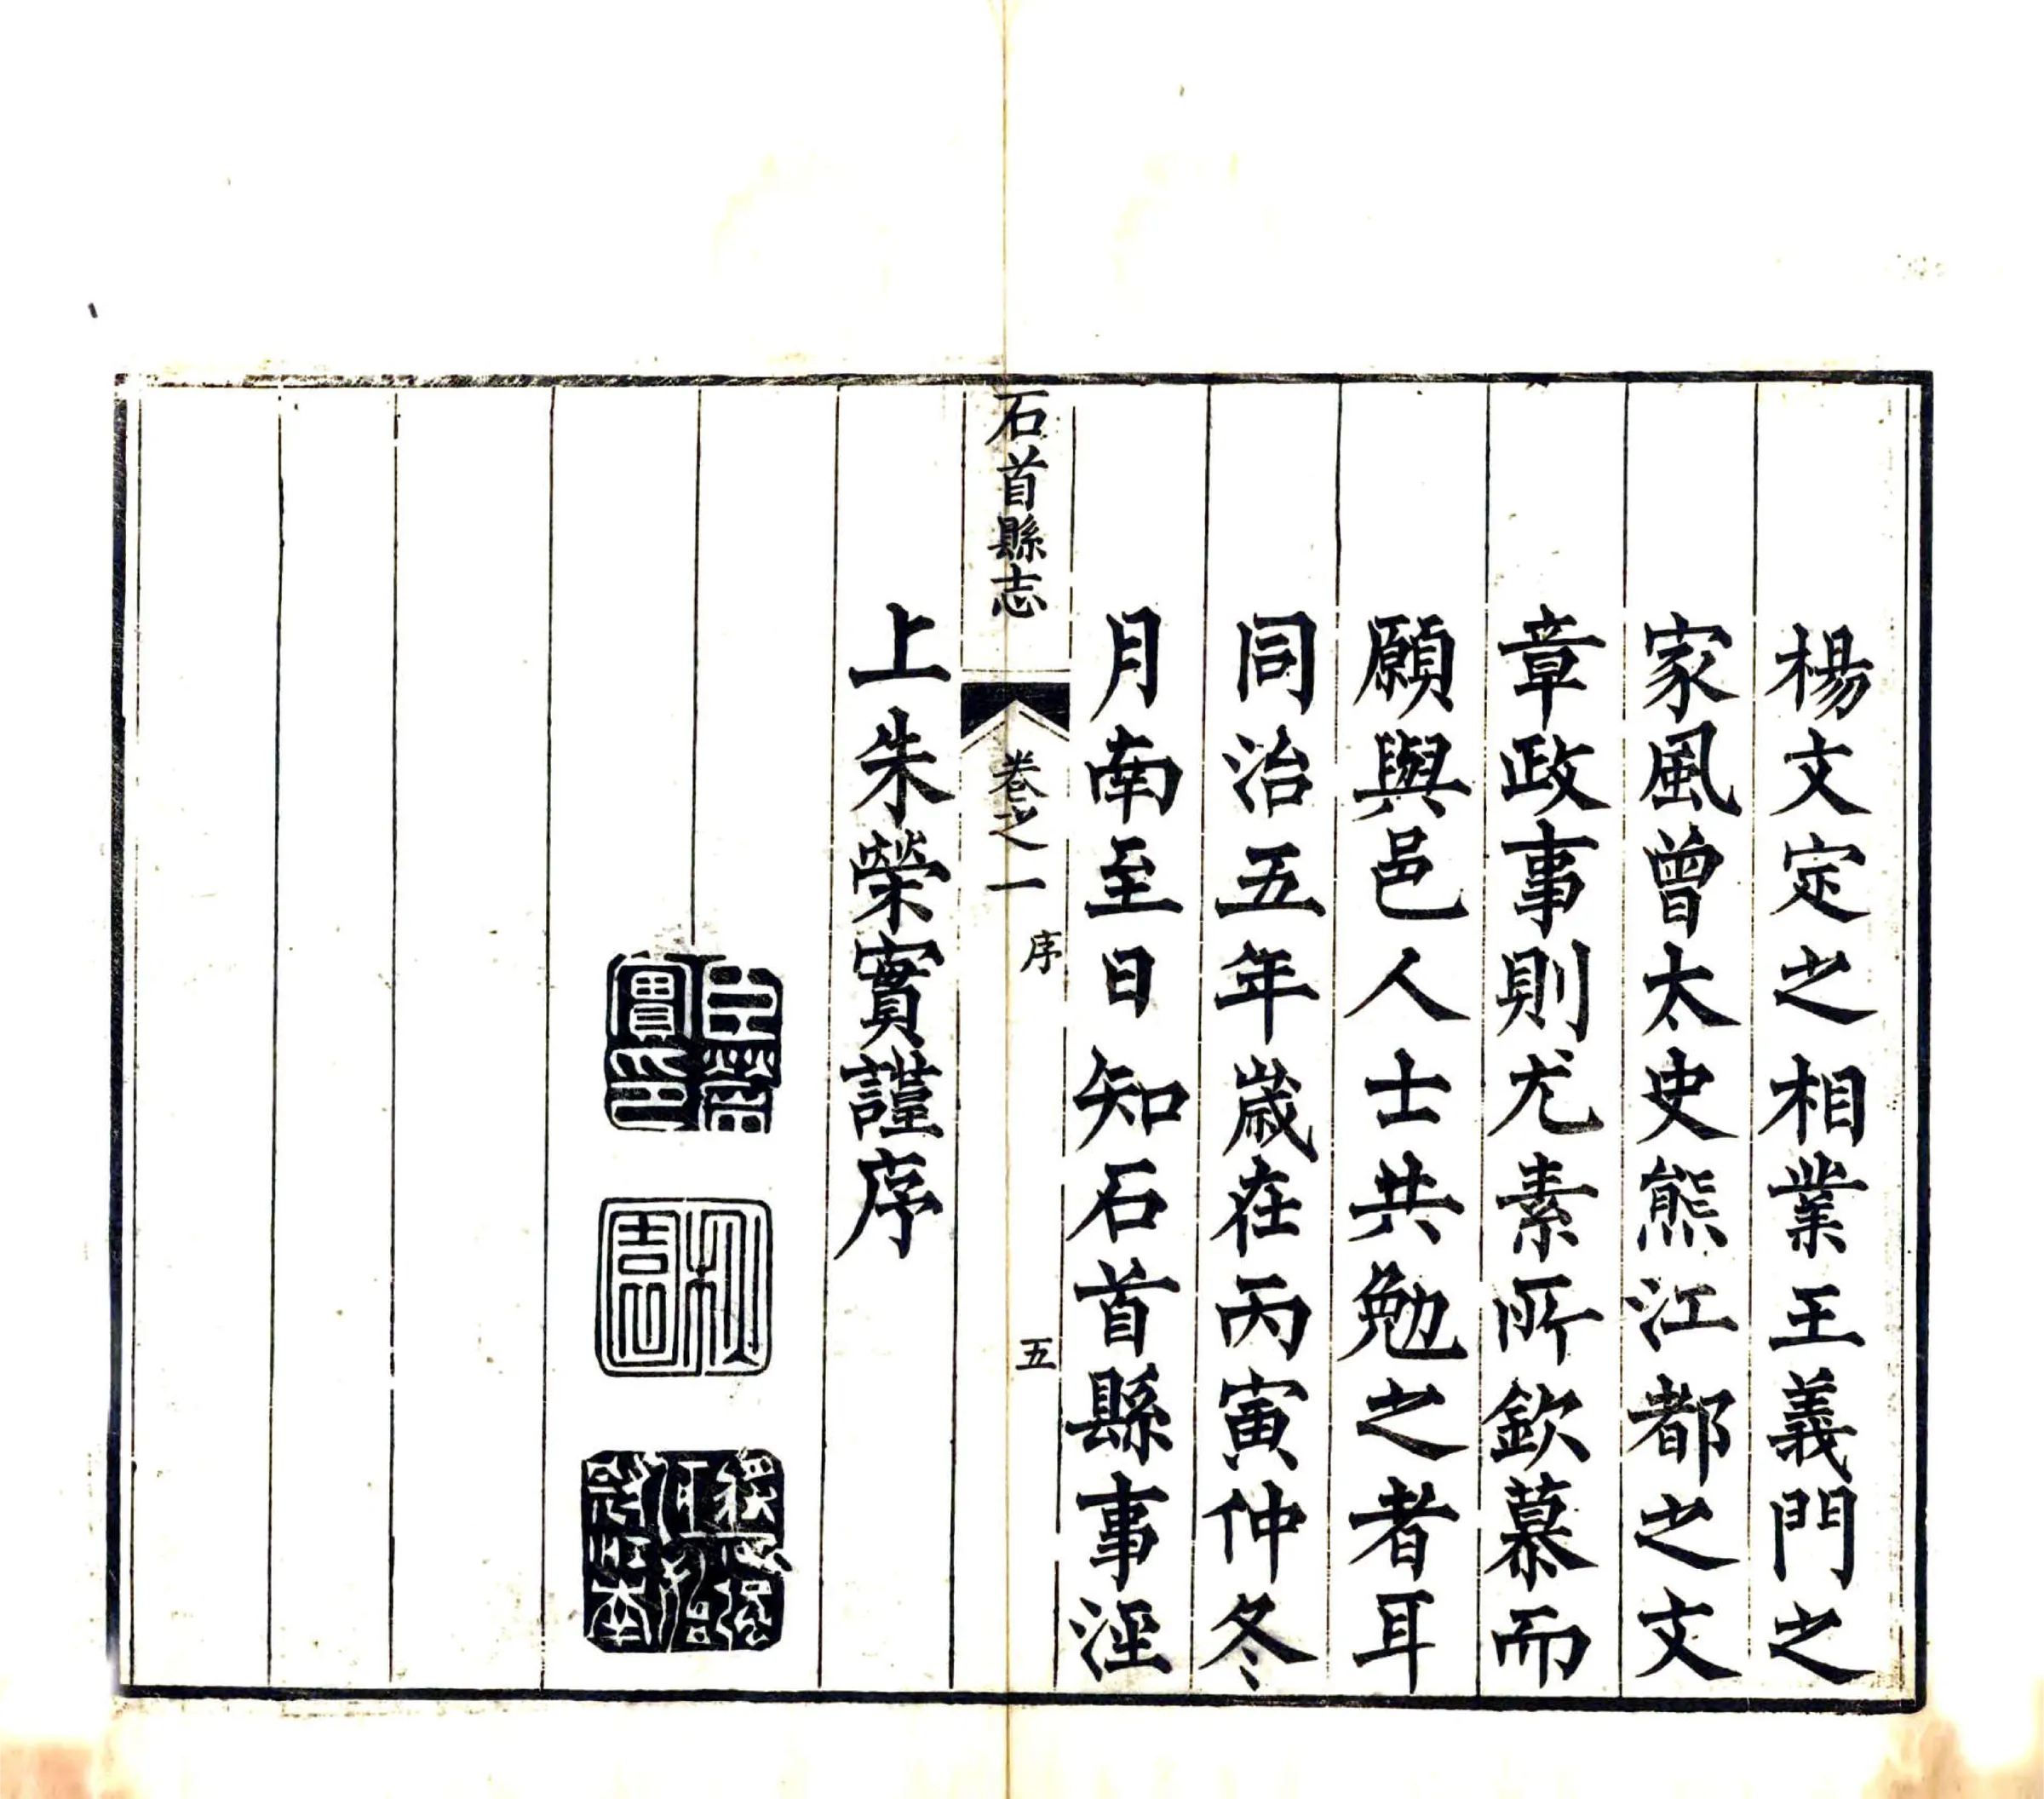 楊文定之相業王義門之
家風曾太史熊江都之文
章政事則尤素所欽慕而
願與邑人士共勉之者耳
同治五年歲在丙寅仲冬
月南至日知石首縣事涇
石首縣志
卷之一
序
五
上朱榮實謹序
臣榮實印